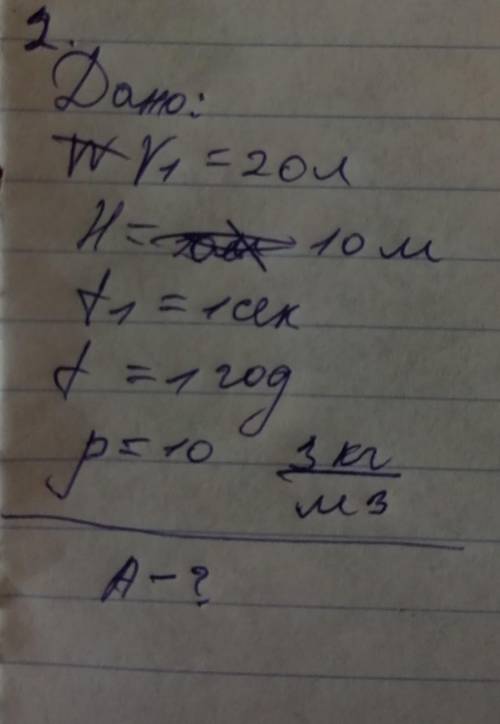 2.
Дано:
V₁ = 20л
H = 10 м
t₁ = 1сек
t = 1 год
p = 10 3 кг
м3
A - ?